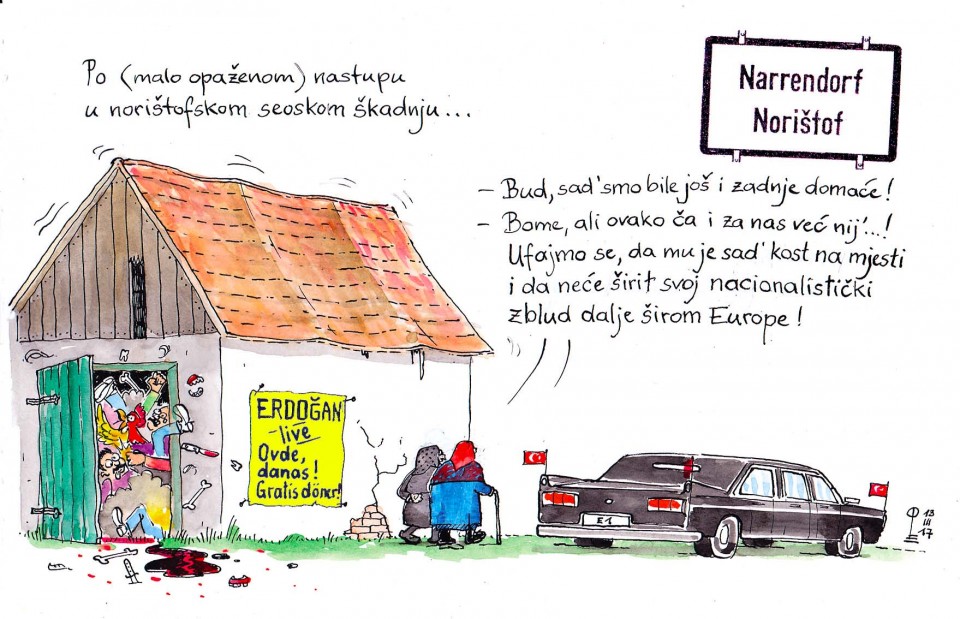 Po (malo opaženom) nastupu
u norištofskom seoskom škadnju...
Narrendorf
Norištof
– Bud, sad' smo bile još i zadnje domaće!
– Bome, ali ovako ča i za nas već nij'...!
Ufajmo se, da mu je sad' kost na mjesti
i da neće širit svoj nacionalistički
zblud dalje širom Europe!
ERDOĞAN
live
Ovde,
danas!
Gratis döner!
E1
13
III
17